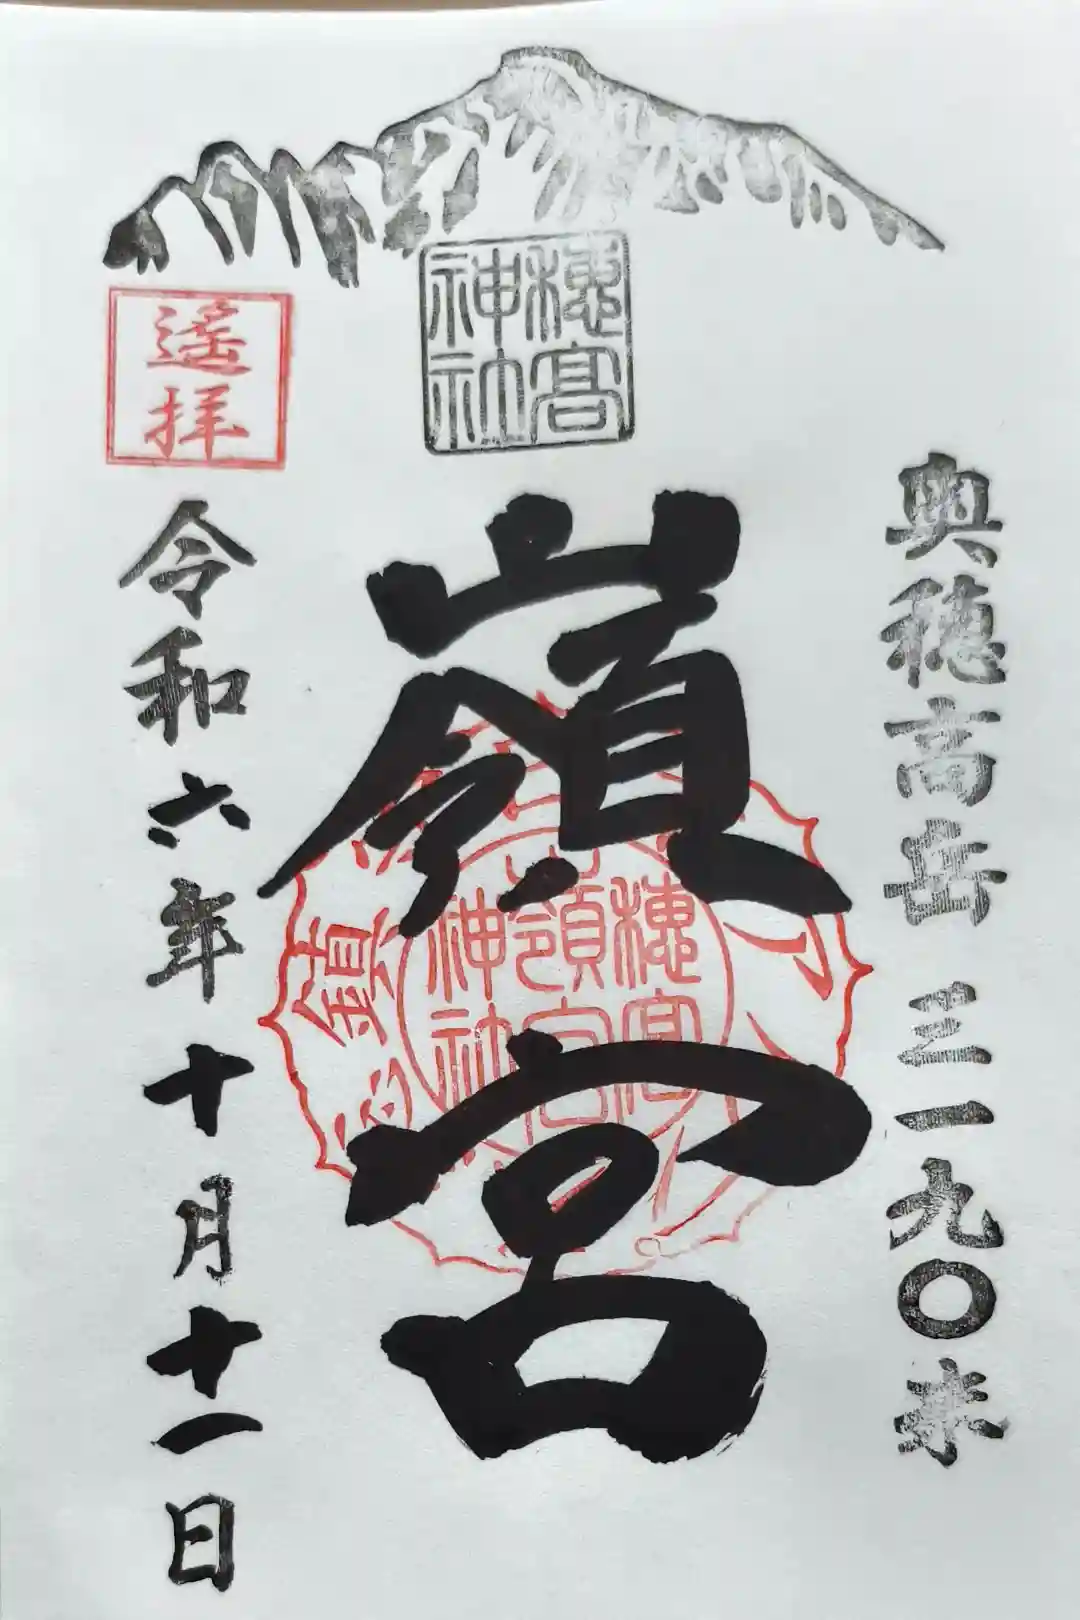 奥穂高岳 三一九〇米
穂高
神社
嶺宮
穂高
嶺宮
神社
遥拝
令和六年十月十一日